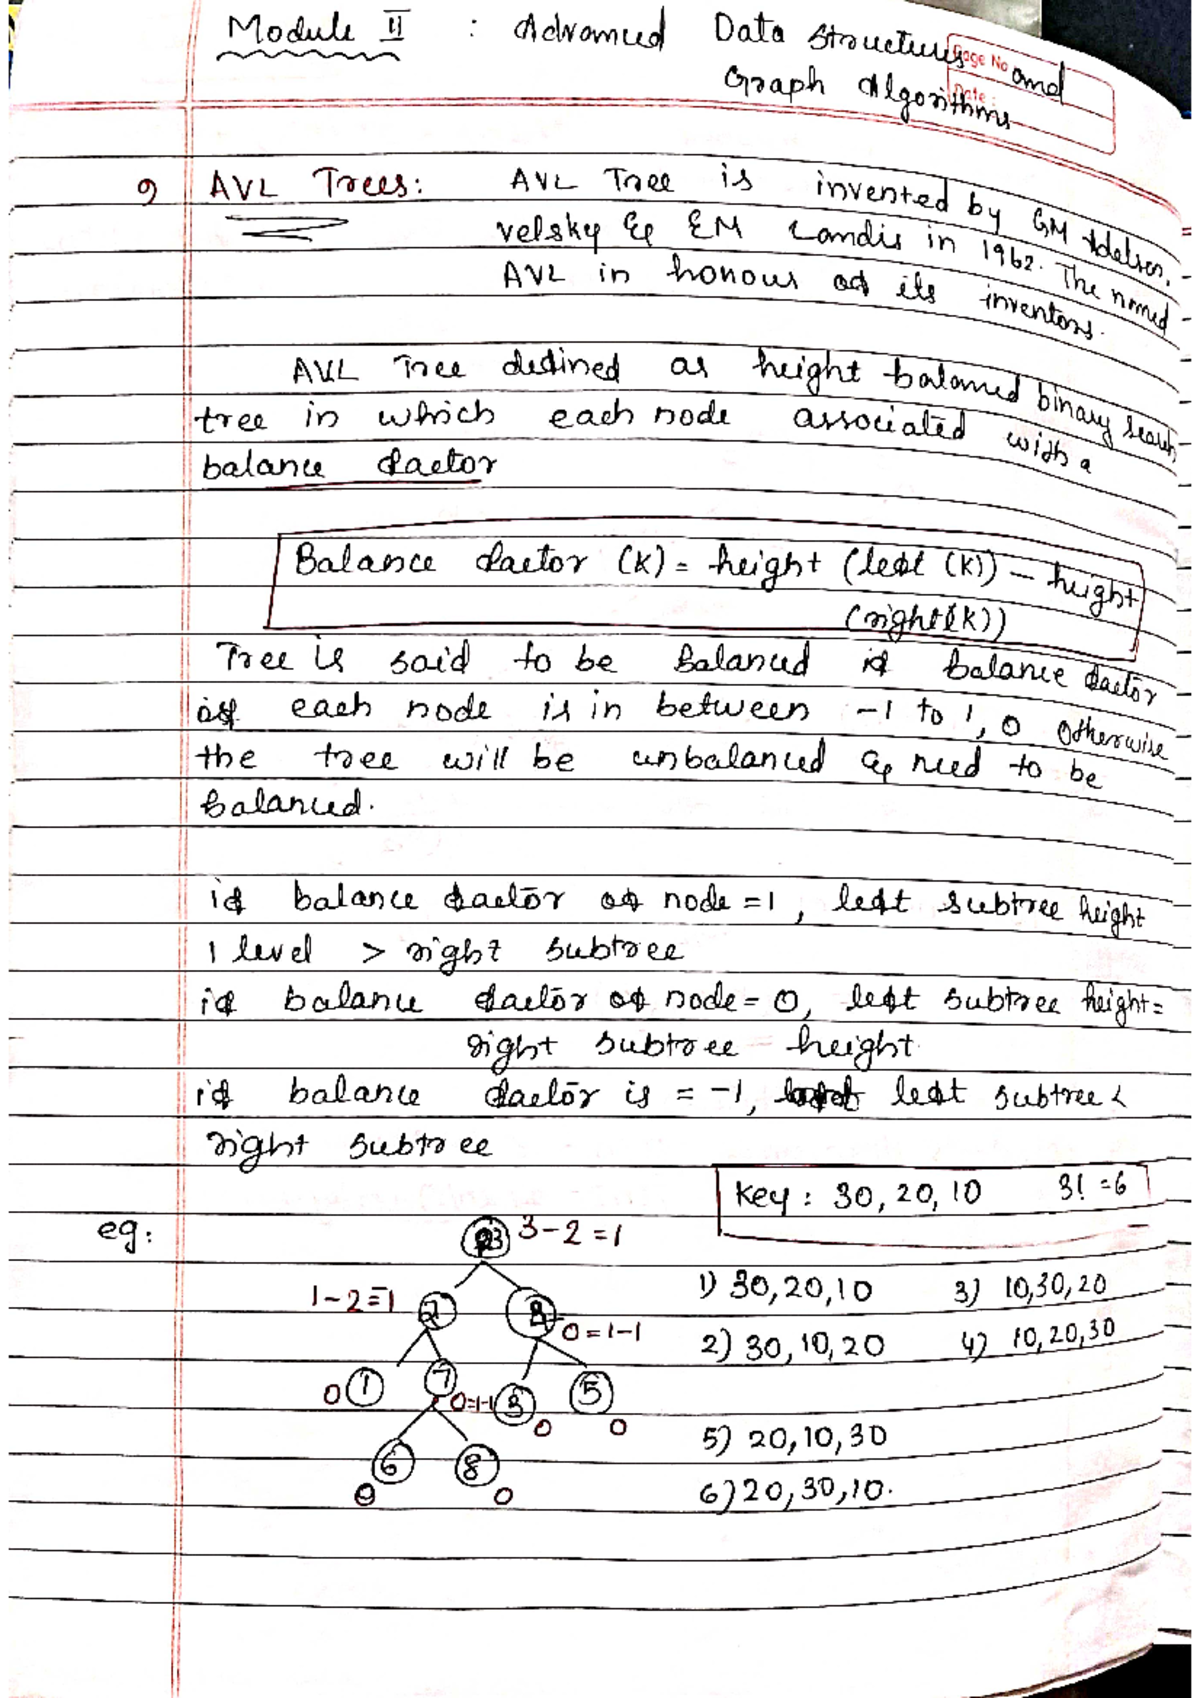 Module II : Advanced Data Structures and
Page No
Date:
Graph Algorithms
9 AVL Trees: AVL Tree is invented by GM Adelson,
velsky & EM Landis in 1962. The named
AVL in honour of its inventors.
AVL Tree defined as height balanced binary search
tree in which each node associated with a
balance factor
Balance factor (K) = height (left (K)) - height
(right(K))
Tree is said to be Balanced if balance factor
of each node is in between -1 to 1, 0 otherwise
the tree will be unbalanced & need to be
balanced.
if balance factor of node = 1, left subtree height
1 level > right subtree
if balance factor of node = 0, left subtree height =
right subtree = height.
if balance factor is = -1, left subtree <
right subtree
Key: 30, 20, 10 3! = 6
eg: 3-2=1
1-2=1 2 0=1-1
0 1 7 0=1-1 3 0 5 0
6 0 8 0
1) 30,20,10 3) 10,30,20
2) 30,10,20 4) 10,20,30
5) 20,10,30
6) 20,30,10.